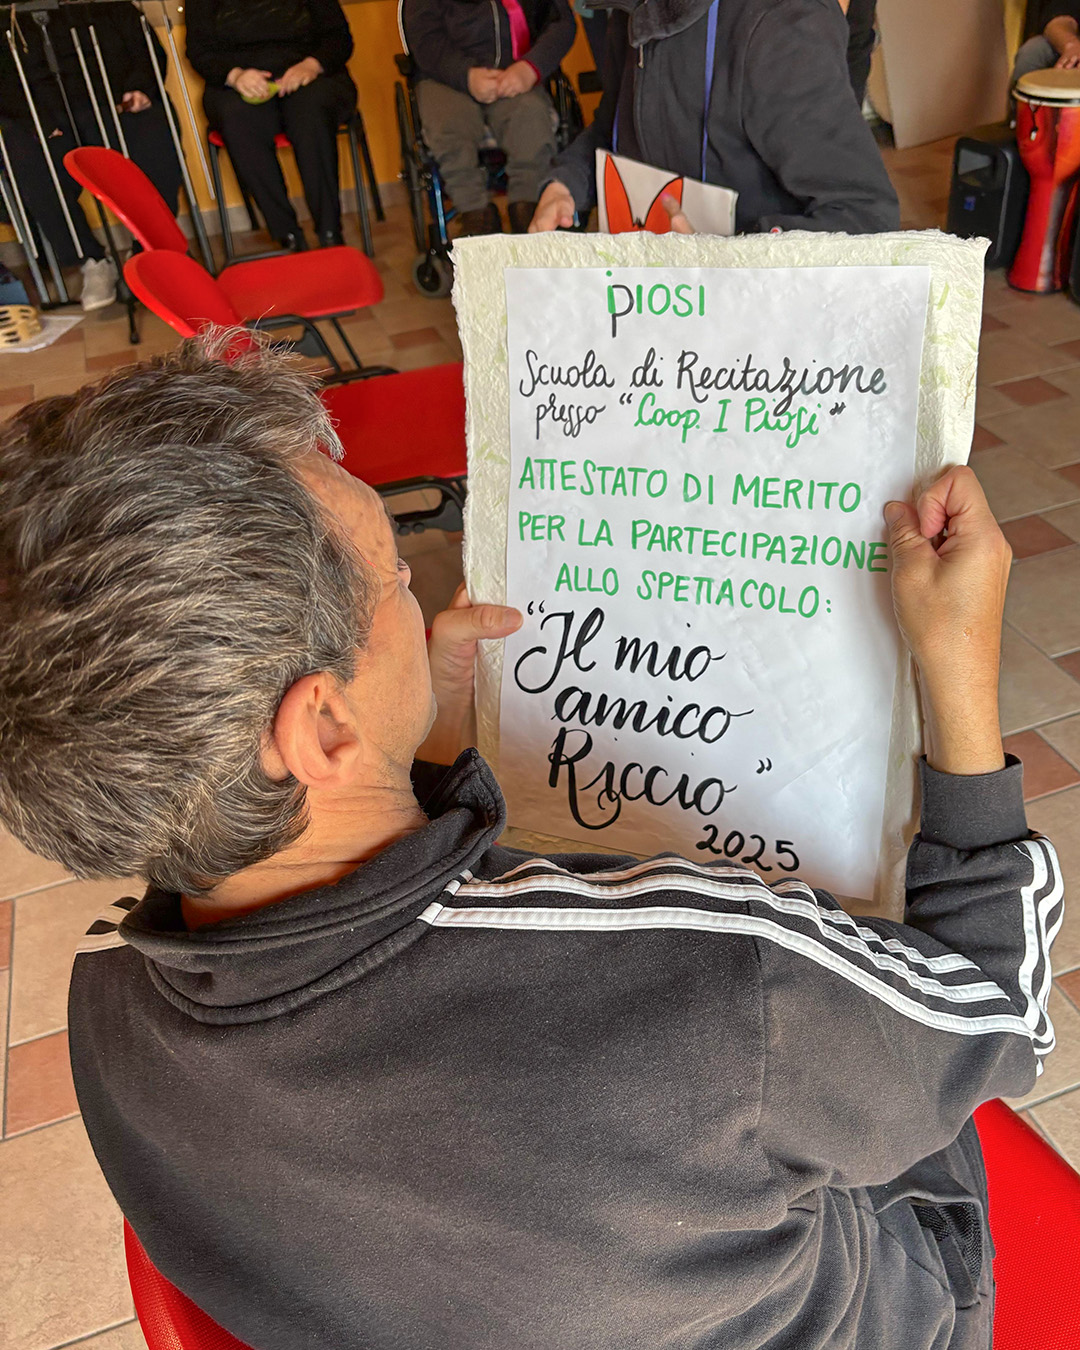 iPIOSI
Scuola di Recitazione
presso "Coop. I Piosi"
ATTESTATO DI MERITO
PER LA PARTECIPAZIONE
ALLO SPETTACOLO:
"Il mio
amico
Riccio"
2025